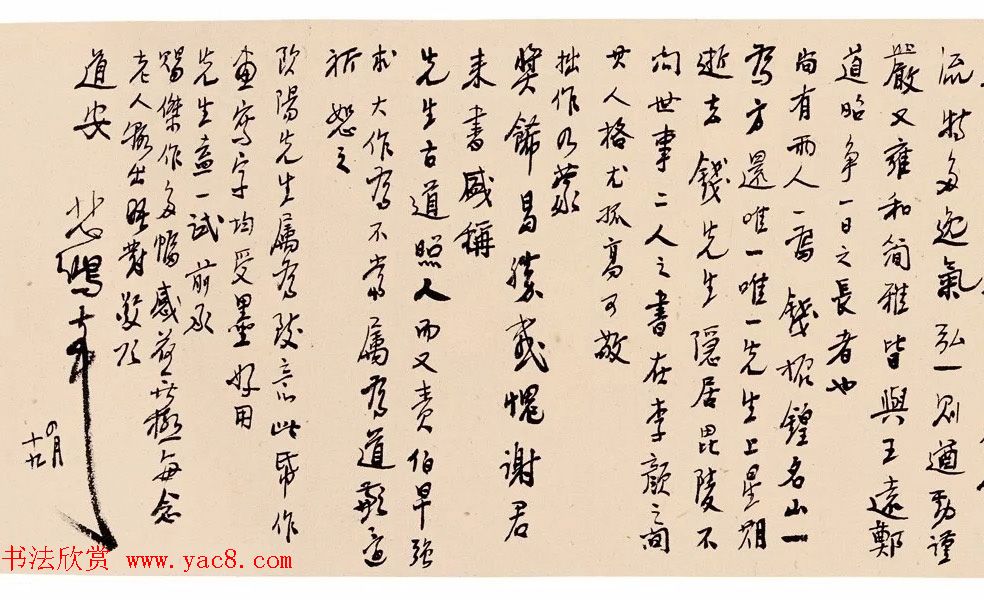 流特多逸氣弘一則遒勁謹
嚴又雍和簡雅皆與王遠鄭
道昭爭一日之長者也
尚有兩人一為錢振鍠名山一
為方還唯一唯一先生上星期
逝去錢先生隱居毘陵不
問世事二人之書在李顏之間
其人格尤孤高可敬
拙作乃蒙
獎飾曷勝感愧謝君
來書盛稱
先生古道照人而又責伯早強
求大作為不當屬為道歉意
祈恕之
歐陽先生屬為致意此紙作
畫寫字均受墨好用
先生盍一試前承
賜傑作多幅感荷無極每念
老人輒出晤對敬頌
道安
悲鴻頓首
四月
十九
书法欣赏 www.yac8.com